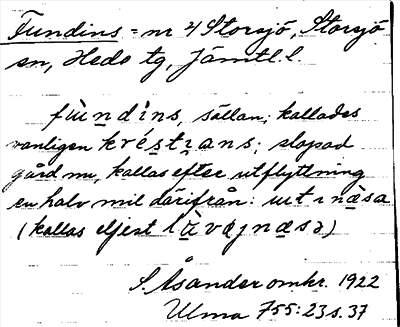 Fundins = nr 4 Storsjö, Storsjö
sn, Heds tg, Jämtl. l.
fùndins, sällan; kallades
vanligen kréstjans; slopad
gård nu, kallas efter utflyttning
en halv mil därifrån: ut i næsa
(kallas eljest làvajnæsa)
S. Åsander omkr. 1922
Ulma 755:23 s. 37